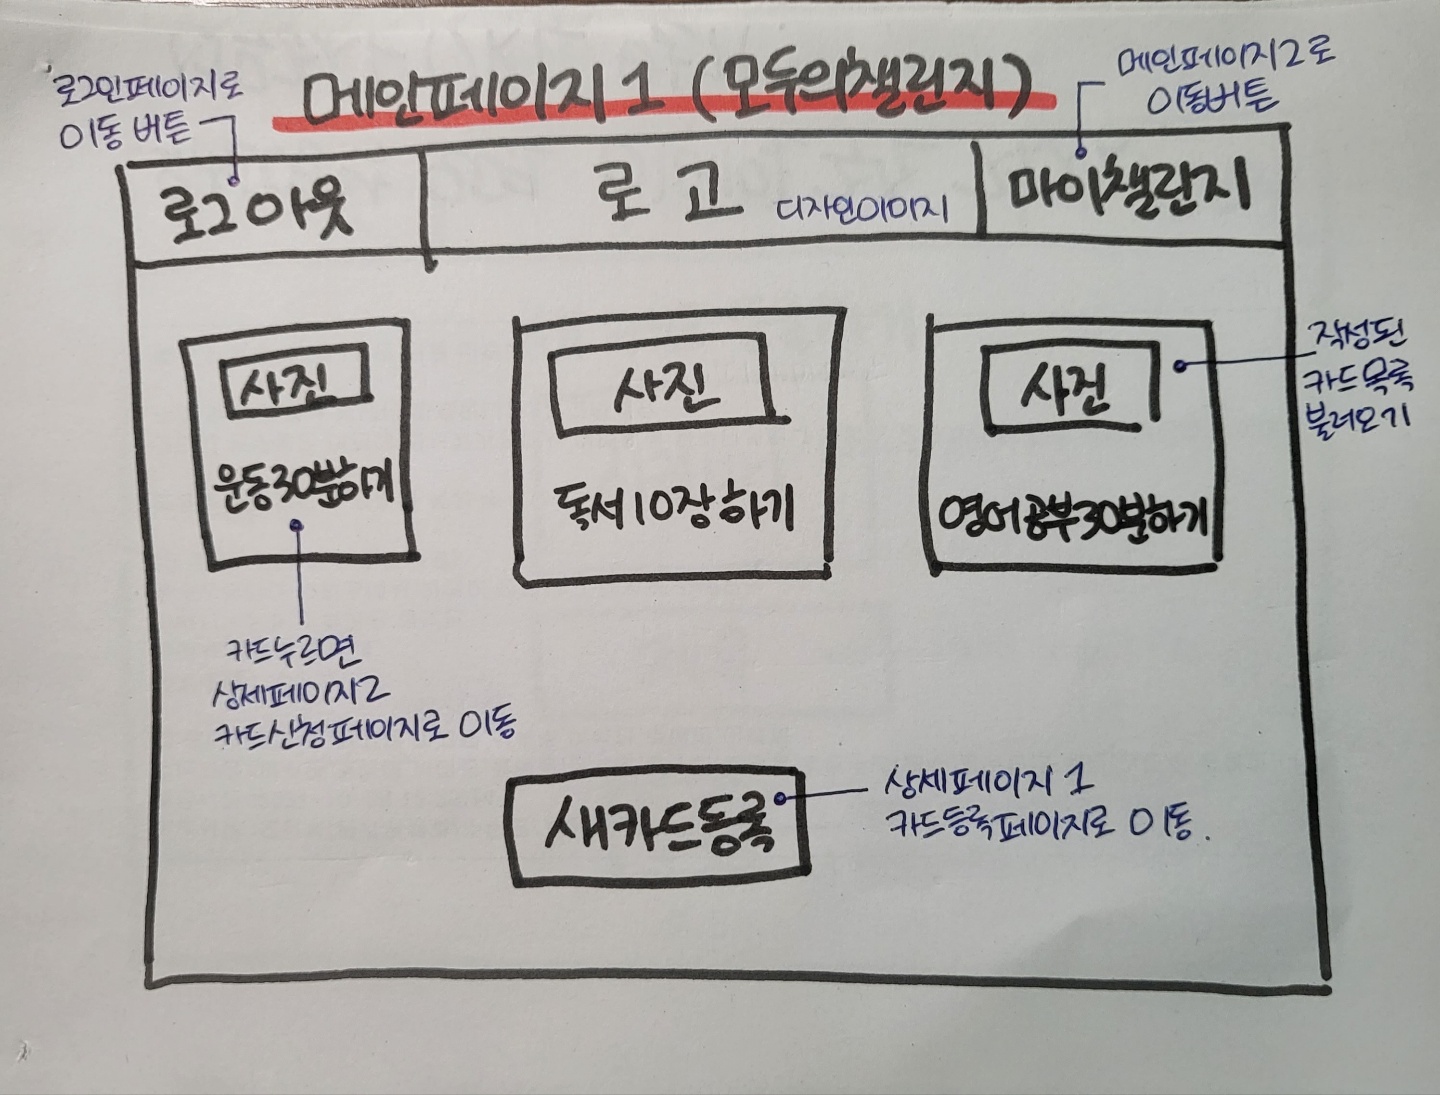 메인페이지 1 (모두의챌린지)
로그인페이지로
이동 버튼
메인페이지 2로
이동버튼
로그아웃
로고
디자인이미지
마이챌린지
사진
운동30분하기
사진
독서10장하기
사진
영어공부30분하기
작성된
카드 목록
불러오기
카드누르면
상세페이지2
카드신청페이지로 이동
새카드등록
상세페이지 1
카드등록페이지로 이동.